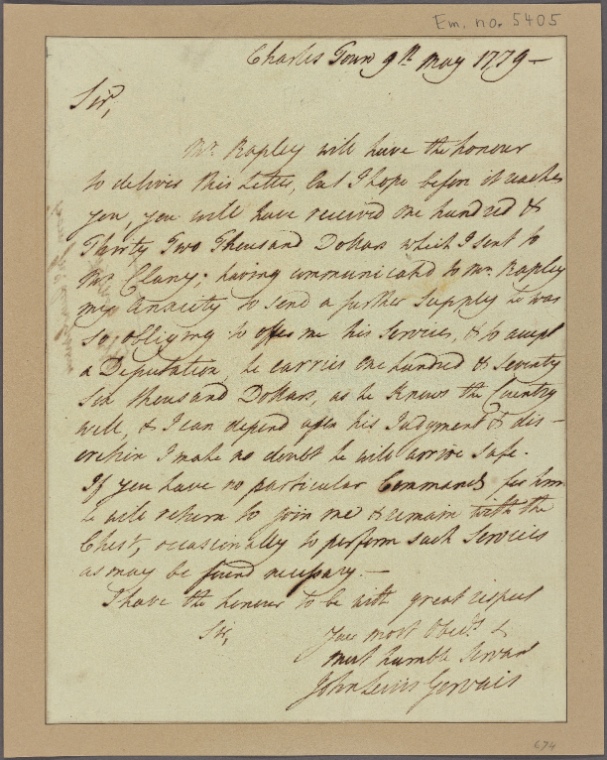 Em. no. 5405
Charles Town 9th May 1779 —
Sir,
Mr. Rapley will have the honour
to deliver this Letter, but I hope before it reaches
you, you will have received One hundred &
Thirty Two Thousand Dollars which I sent to
Mr Clany; having communicated to Mr. Rapley
my Anxiety to send a further Supply he was
so obliging to offer me his Services, & to accept
a Deputation, he carries One hundred & Seventy
Six thousand Dollars, as he knows the Country
well, & I can depend upon his Judgment & dis-
cretion I make no doubt he will arrive safe.
If you have no particular Commands for him
he will return to join me & remain with the
Chest, occasionally to perform such Services
as may be found necessary. —
I have the honour to be with great respect
Sir,
Your most Obedt. &
most humble Servant
John Lewis Gervais
674